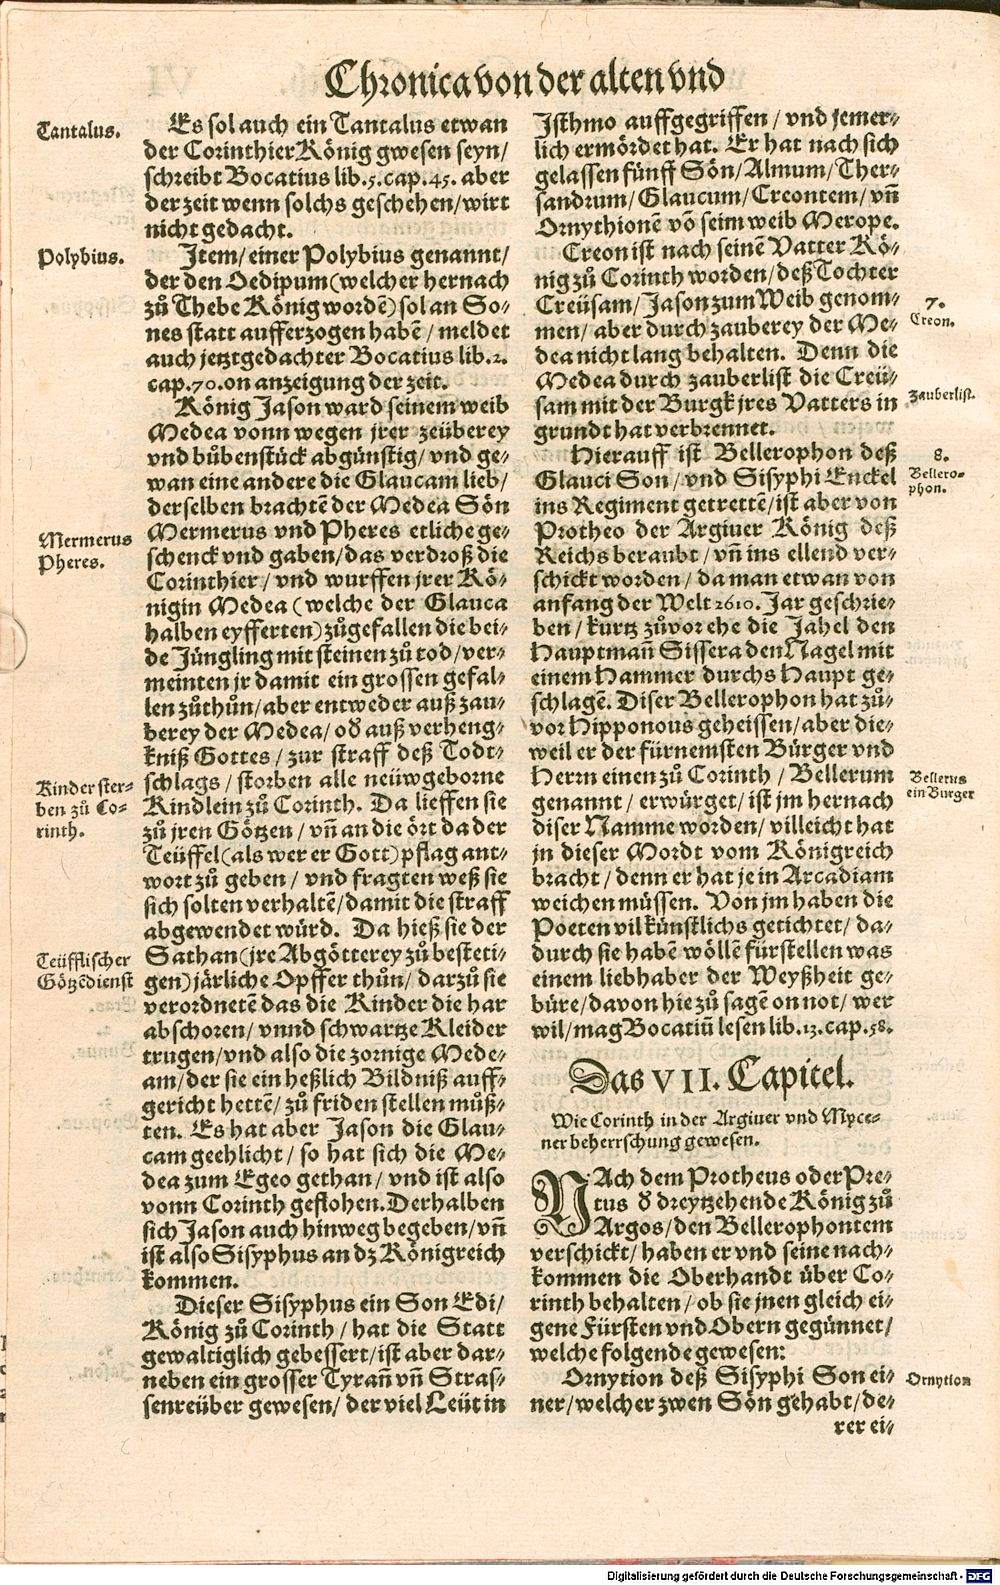 Chronica von der alten vnd
Tantalus.
Es sol auch ein Tantalus etwan
der Corinthier König gwesen seyn/
schreibt Bocatius lib. 5. cap. 45. aber
der zeit wenn solchs geschehen/ wirt
nicht gedacht.
Polybius.
Item/ einer Polybius genannt/
der den Oedipum (welcher hernach
zů Thebe König wordē) sol an So⸗
nes statt aufferzogen habē/ meldet
auch jetztgedachter Bocatius lib. 2.
cap. 70. on anzeigung der zeit.
König Jason ward seinem weib
Medea vonn wegen jrer zeüberey
vnd bůbenstück abgünstig/ vnd ge⸗
wan eine andere die Glaucam lieb/
derselben brachtē der Medea Sön
Mermerus
Pheres.
Mermerus vnd Pheres etliche ge⸗
schenck vnd gaben/ das verdroß die
Corinthier/ vnd wurffen jrer Kö⸗
nigin Medea (welche der Glauca
halben eyfferten) zůgefallen die bei⸗
de Jüngling mit steinen zů tod/ ver⸗
meinten jr damit ein grossen gefal⸗
len zůthůn/ aber entweder auß zau⸗
berey der Medea/ oď auß verheng⸗
kniß Gottes/ zur straff deß Todt⸗
Kinder ster⸗
ben zů Co⸗
rinth.
schlags/ storben alle neüwgeborne
Kindlein zů Corinth. Da lieffen sie
zů jren Götzen/ vñ an die ört da der
Teüffel (als wer er Gott) pflag ant⸗
wort zů geben/ vnd fragten weß sie
sich solten verhaltē/ damit die straff
abgewendet würd. Da hieß sie der
Teüfflischer
Götzēdienst
Sathan (jre Abgötterey zů besteti⸗
gen) järliche Opffer thůn/ darzů sie
verordnetē das die Kinder die har
abschoren/ vnnd schwartze Kleider
trugen/ vnd also die zornige Mede⸗
am/ der sie ein heßlich Bildniß auff⸗
gericht hettē/ zů friden stellen můß⸗
ten. Es hat aber Jason die Glau⸗
cam geehlicht/ so hat sich die Me⸗
dea zum Egeo gethan/ vnd ist also
vonn Corinth geflohen. Derhalben
sich Jason auch hinweg begeben/ vñ
ist also Sisyphus an dz Königreich
kommen.
Dieser Sisyphus ein Son Edi/
König zů Corinth/ hat die Statt
gewaltiglich gebessert/ ist aber dar⸗
neben ein grosser Tyrañ vñ Stras⸗
senreüber gewesen/ der viel Leüt in
Isthmo auffgegriffen/ vnd jemer⸗
lich ermördet hat. Er hat nach sich
gelassen fünff Sön/ Almum/ Ther⸗
sandrum/ Glaucum/ Creontem/ vñ
Ornythionē vō seim weib Merope.
Creon ist nach seinē Vatter Kö⸗
nig zů Corinth worden/ deß Tochter
7.
Creon.
Creüsam/ Jason zum Weib genom⸗
men/ aber durch zauberey der Me⸗
dea nicht lang behalten. Denn die
Zauberlist.
Medea durch zauberlist die Creü⸗
sam mit der Burgk jres Vatters in
grundt hat verbrennet.
8.
Bellero⸗
phon.
Hierauff ist Bellerophon deß
Glauci Son/ vnd Sisyphi Enckel
ins Regiment getrettē/ ist aber von
Protheo der Argiuer König deß
Reichs beraubt/ vñ ins ellend ver⸗
schickt worden/ da man etwan von
anfang der Welt 2610. Jar geschrie⸗
ben/ kurtz zůvor ehe die Jahel den
Hauptmañ Sissera den Nagel mit
einem Hammer durchs Haupt ge⸗
schlagē. Diser Bellerophon hat zů⸗
vor Hipponous geheissen/ aber die⸗
weil er der fürnemsten Bürger vnd
Bellerus
ein Burger
Herrn einen zů Corinth/ Bellerum
genannt/ erwürget/ ist jm hernach
diser Namme worden/ villeicht hat
jn dieser Mordt vom Königreich
bracht/ denn er hat je in Arcadiam
weichen müssen. Von jm haben die
Poeten vil künstlichs getichtet/ da⸗
durch sie habē wöllē fürstellen was
einem liebhaber der Weyßheit ge⸗
büre/ davon hie zů sagē on not/ wer
wil/ mag Bocatiū lesen lib. 13. cap. 58.
Das VII. Capitel.
Wie Corinth in der Argiuer vnd Myce⸗
ner beherrschung gewesen.
NAch dem Protheus oder Pre⸗
tus ď dreytzehende König zů
Argos/ den Bellerophontem
verschickt/ haben er vnd seine nach⸗
kommen die Oberhandt über Co⸗
rinth behalten/ ob sie jnen gleich ei⸗
gene Fürsten vnd Obern gegünnet/
welche folgende gewesen:
Ornytion
Ornytion deß Sisyphi Son ei⸗
ner/ welcher zwen Sön gehabt/ de⸗
rer ei⸗
Digitalisierung gefördert durch die Deutsche Forschungsgemeinschaft - DFG